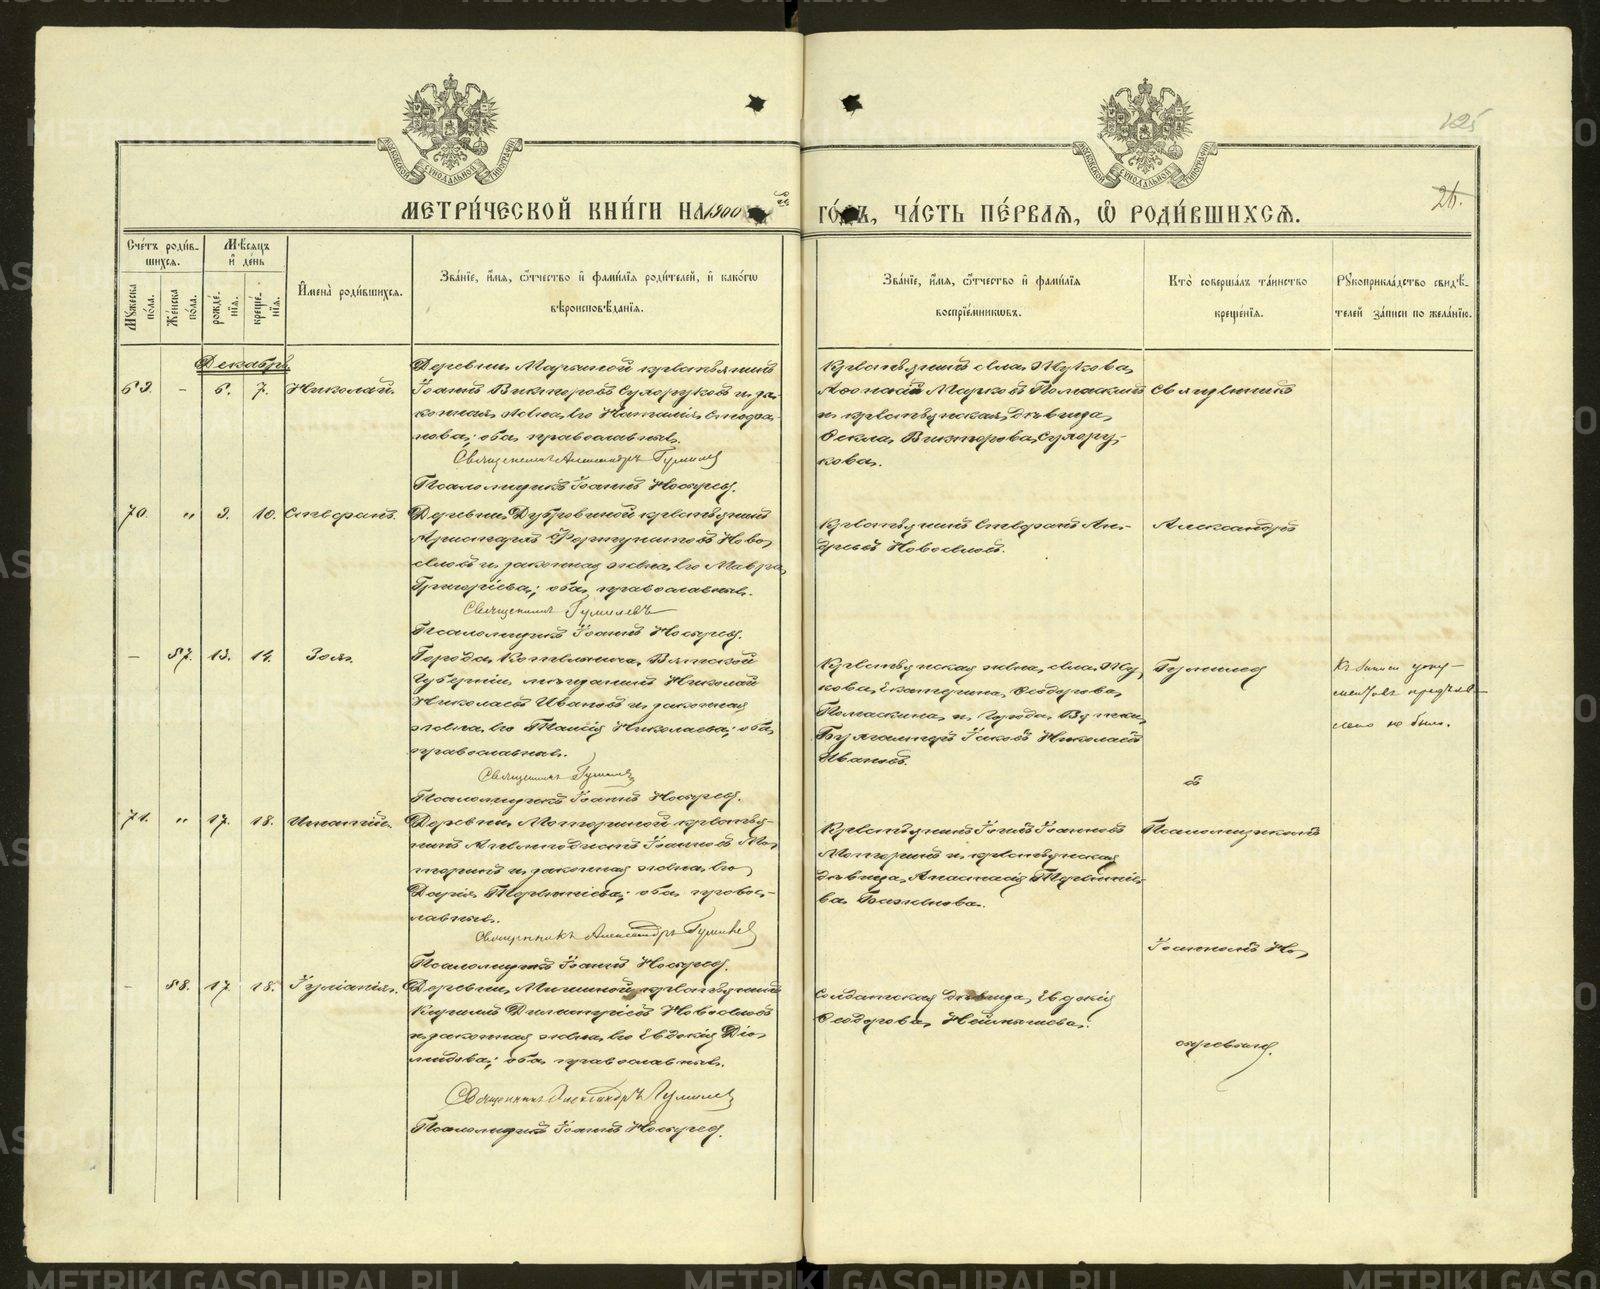 125
26.
МЕТРИ́ЧЕСКОЙ КНИ́ГИ НА 1900
ГО́ДЪ, ЧА́СТЬ ПЕ́РВАЯ, Ѽ РОДИ́ВШИХСЯ.
Сче́тъ роди́в-
шихся.
Мѣ́сяцъ
и҆ де́нь
Му́жеска
по́ла.
Же́нска
по́ла.
рожде́-
нїя.
креще́-
нїя.
И҆мена̀ роди́вшихся.
Зва́нїе, и҆́мя, ѻ҆́тчество и҆ фами́лїя роди́телей, и҆ како́гѡ
вѣроисповѣ́данїя.
Зва́нїе, и҆́мя, ѻ҆́тчество и҆ фами́лїя
воспрїе́мникѡвъ.
Кто̀ соверша́лъ та́инство
креще́нїя.
Рꙋкоприкла́дство свидѣ́-
телей за́писи по жела́нїю.
Декабрь
69. – 6. 7. Николай.
Деревни Марьиной крестьянинъ
Іоаннъ Викторовъ Сухоруковъ и за-
конная жена его Наталія
обѣ православные.
Священникъ Александръ Гумилев
Псаломщикъ Іоаннъ Носырев.
Крестьянинъ села Жукова,
Марковъ Помаскинъ
и крестьянская дѣвица,
Ѳекла Викторова Сухору-
кова.
Священникъ
70. " 9. 10. Стефанъ.
Деревни Дубровиной крестьянинъ
Аристархъ Фортунатовъ Ново-
селовъ и законная жена его Мавра
Григоріева; оба православные.
Священникъ Гумилевъ
Псаломщикъ Іоаннъ Носырев.
Крестьянинъ Стефанъ Ан-
дреевъ Новоселовъ.
Александръ
– 87. 13. 14. Зоя.
Города Котельнича, Вятской
Губерніи мѣщанинъ Николай
Николаевъ Ивановъ и законная
жена его Таисія Николаева; оба
православные.
Священникъ Гумилев
Псаломщикъ Іоаннъ Носырев.
Крестьянская жена села Жу-
кова, Екатерина Ѳеодорова
Помаскина и города Вятки
Бухгалтеръ Іаковъ Николаевъ
Ивановъ.
Гумилев
Къ записи доку-
ментовъ предъяв-
лено не было.
съ
71. " 17. 18. Игнатій.
Деревни Моториной крестья-
нинъ Іоанновъ Мо-
торинъ и законная жена его
Дарія Терентіева; оба право-
славные.
Священникъ Александръ Гумилев
Псаломщикъ Іоаннъ Носырев.
Крестьянинъ Іоанновъ
Моторинъ и крестьянская
дѣвица Анастасія Терентіе-
ва Баженова.
Псаломщикомъ
Іоанномъ Но-
– 88. 17. 18. Іуліанія.
Деревни Мишиной крестьянинъ
Кириллъ Димитріевъ Новоселовъ
и законная жена его Евдокія Діо-
мидова; оба православные.
Священникъ Александръ Гумилев
Псаломщикъ Іоаннъ Носырев.
Солдатская дѣвица, Евдокія
Ѳеодорова Неймышева.
сыревымъ.
METRIKI.GASO-URAL.RU